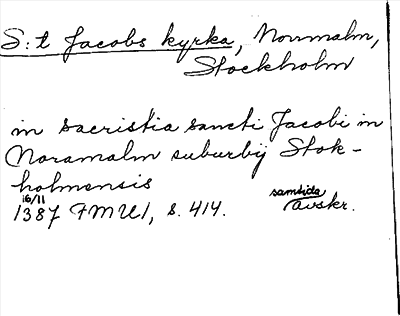 S:t Jacobs kyrka, Norrmalm,
Stockholm
in sacristia sancti Jacobi in
Noramalm suburbij Stok-
holmensis
16/11
1387 FMU I, s. 414.
samtida
avskr.